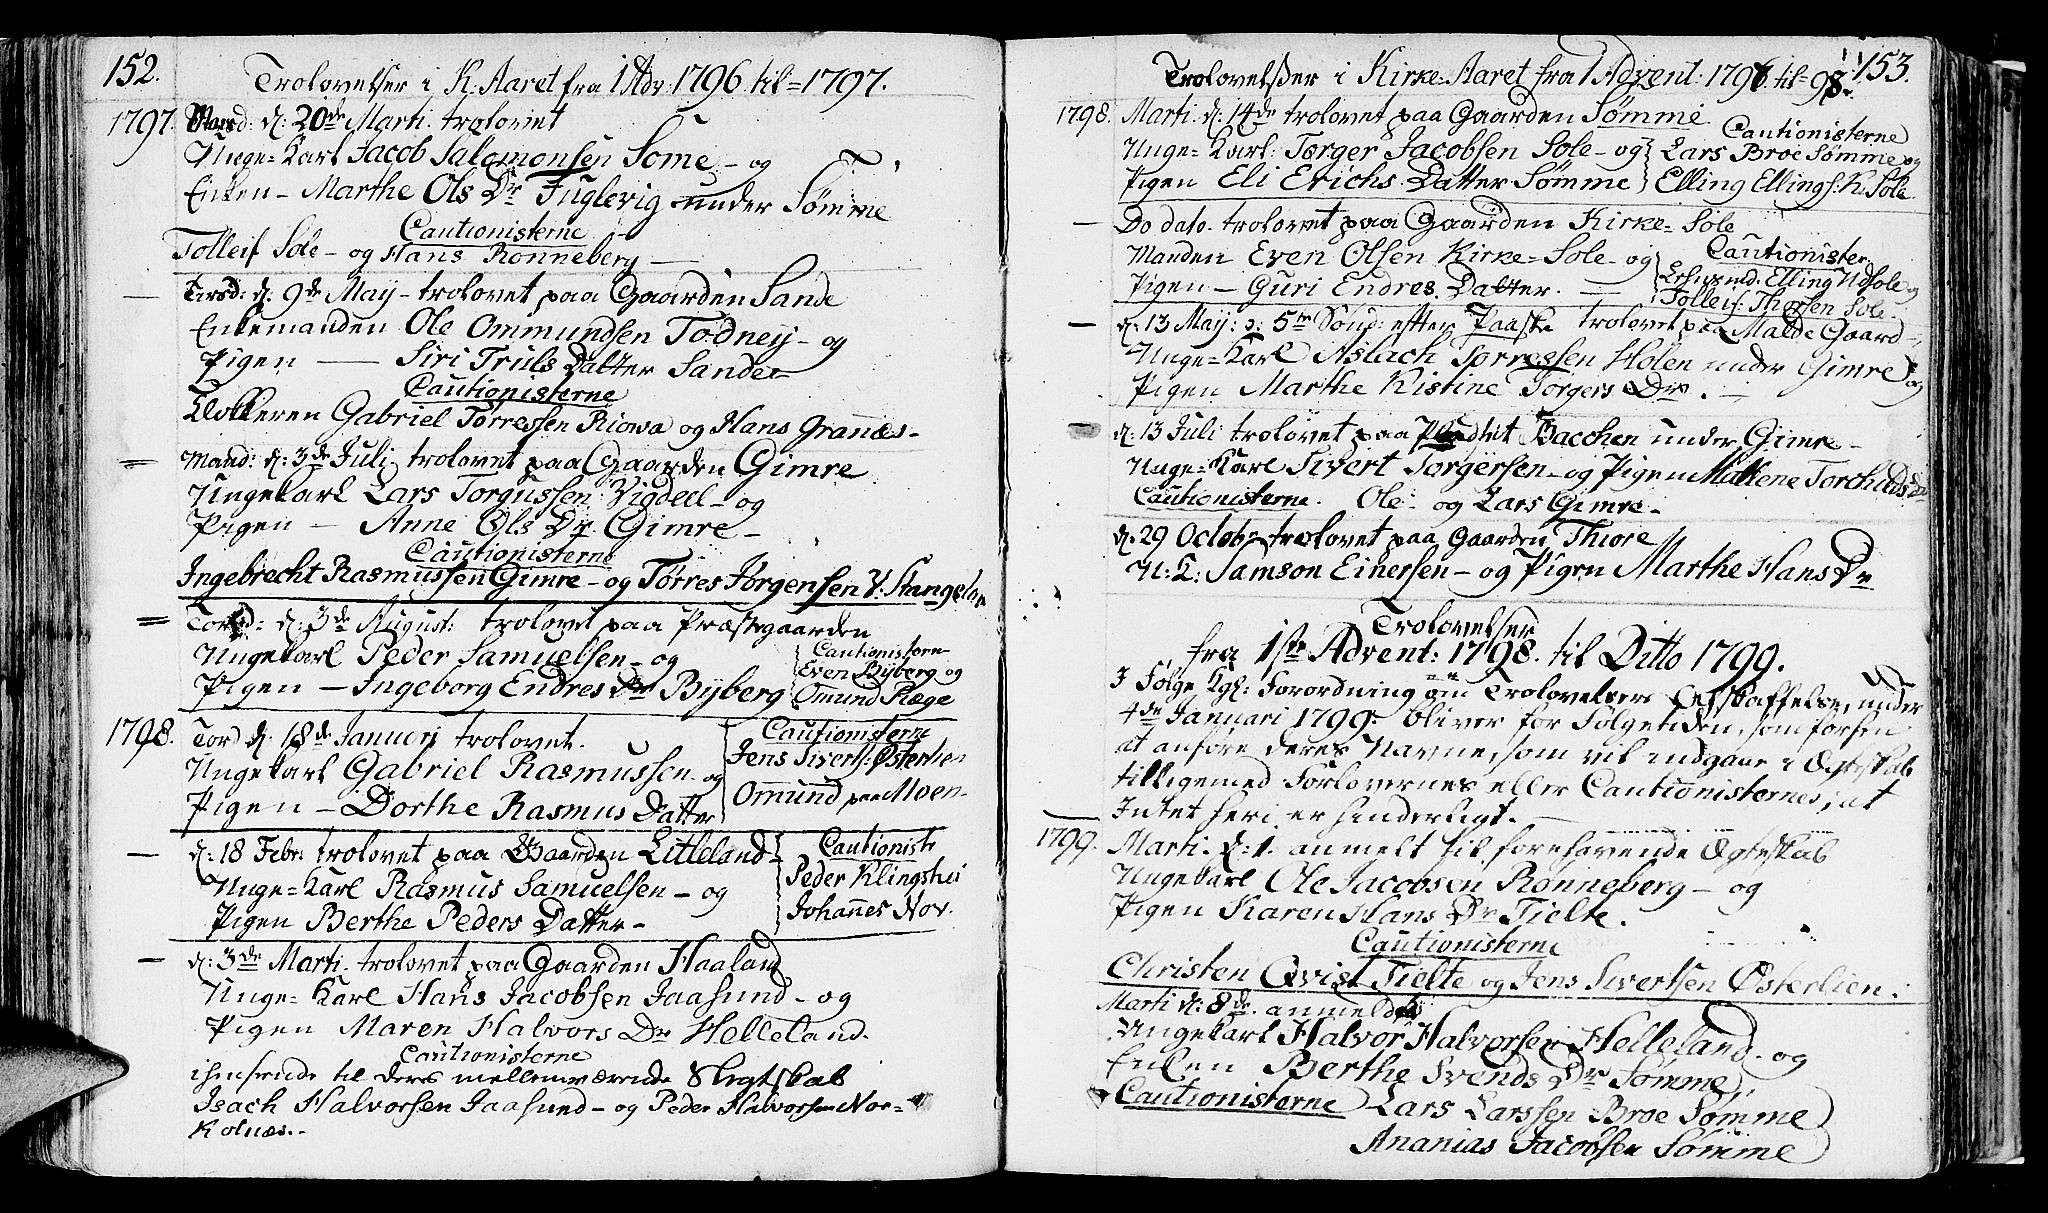 152.
Trolovelser i K. Aaret fra 1 Adv: 1796 til = 1797.
1797. Mand: d: 20de Marti. trolovet
Unge = Karl Jacob Salomonsen Some - og
Enken - Marthe Ols Dr Fuglevig under Sømme
Cautionisterne
Tolleif Sole - og Hans Rønneberg -
Tirsd: d. 9de Maij - trolovet paa Gaarden Sande
Enkemanden Ole Ommundsen Todneij - og
Pigen - Siri Truls Datter Sande
Cautionisterne
Klokkeren Gabriel Torressen Riswa og Hans Granæs -
Mand: d: 3de Juli trolovet paa Gaarden Gimre
Ungekarl Lars Torgussen Vigdeel - og
Pigen - Anne Ols Dr. Gimre -
Cautionisterne
Ingebrecht Rasmussen Gimre - og Tørres Jørgensen V: Stangelan
Torsd: d: 3de August: trolovet paa Præstegaarden
Ungekarl Peder Samuelsen - og
Pigen - Ingeborg Endres Dr Byberg
Cautionistern
Even Byberg og
Omund Ræge
1798. Tord d. 18de Januarj trolovet.
Ungekarl Gabriel Rasmussen og
Pigen - Dorthe Rasmus Datter
Cautionistern
Jens Sivertss: Østerlien
Omund paa Moen -
d: 18 Febr: trolovet paa Gaarden Litleland -
Unge = Karl Rasmus Samuelsen - og
Pigen Berthe Peders Datter -
Cautionistr
Peder Klingshei
Johannes Nor.
d: 3de Marti. trolovet paa Gaarden Haaland
Unge = Karl Hans Jacobsen Jaasund - og
Pigen Maren Halvors Dr Helleland.
Cautionisterne
i henseende til deres mellemværende Slegtskab
Isach Halvorsen Jaasund - og Peder Halvorsen Nor =
Kolnæs. -
153.
Trolovelser i Kirke = Aaret fra 1 Advent: 1797 til 98.
1798. Marti d: 14de trolovet paa Gaarden Sømme
Unge = Karl: Torger Jacobsen Sole - og
Pigen Eli Erichs Datter Sømme
Cautionisterne
Lars Broe Sømme og
Elling Ellings: K. Sole
Do dato. trolovet paa Gaarden Kirke = Sole
Manden Even Olsen Kirke = Sole - og
Pigen - Guri Endres Datter. -
Cautionister
Lehnsmd. Elling Udsole og
Tolleif Thorsen Sole.
d. 13 Maij: ɔ: 5te Sönd: efter Paaske trolovet paa Malde Gaard -
Unge = Karl Aslach Torressen Holen under Gimre og
Pigen Marthe Kistine Torgers Dr. -
d: 13 Juli trolovet paa Pladset Bacchen under Gimre -
Unge = Karl Sivert Torgersen - og Pigen Mallene Torchilds Dr
Cautionisterne. Ole - og Lars Gimre -
d. 29 Octobr: trolovet paa Gaarden Thiore
U: K: Samson Einersen - og Pigen Marthe Hans Dr
Trolovelser
fra 1ste Advent: 1798. til Ditto 1799.
I Følge Kgl: Forordning om Trolovelsers Afskaffelse, under
4de Januari 1799. bliver for Følgetiden, som forhen
at anføre deres Navne, som vil indgaae i Ægteskab
tilligemed Forlovernes eller Cautionisternes, at
Intet heri er hinderligt. -
1799. Marti. d: 1. anmelt til forehavende Ægteskab
Ungekarl Ole Jacobsen Rønneberg - og
Pigen Karen Hans Dr Tielte.
Cautionisterne
Christen Qvist Tielte og Jens Sivertsen Østerlien.
Marti d: 8de. anmeldt
Ungekarl Halvor Halvorsen Helleland - og
Enken Berthe Svends Dr Sømme,
Cautionisterne Lars Larssen Broe Sømme
Ananias Jacobsen Sømme